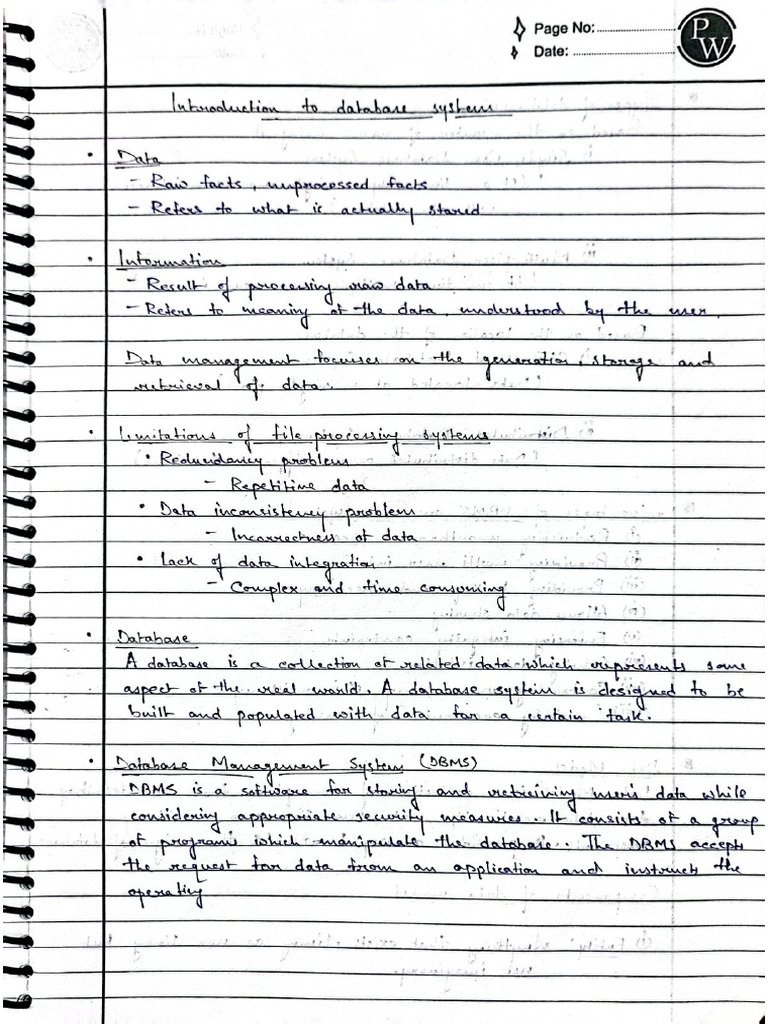 Page No:
Date:
PW
Introduction to database systems
• Data
- Raw facts, unprocessed facts
- Refers to what is actually stored
• Information
- Result of processing raw data
- Refers to meaning of the data, understood by the user.
Data management focusses on the generation, storage and
retrieval of data.
• Limitations of file processing systems
• Redundancy problem
- Repetitive data
• Data inconsistency problem
- Incorrectness of data
• Lack of data integration
- Complex and time consuming
• Database
A database is a collection of related data which represents some
aspect of the real world. A database system is designed to be
built and populated with data for a certain task.
• Database Management System (DBMS)
DBMS is a software for storing and retrieving users data while
considering appropriate security measures. It consists of a group
of programs which manipulate the database. The DBMS accepts
the request for data from an application and instructs the
operating